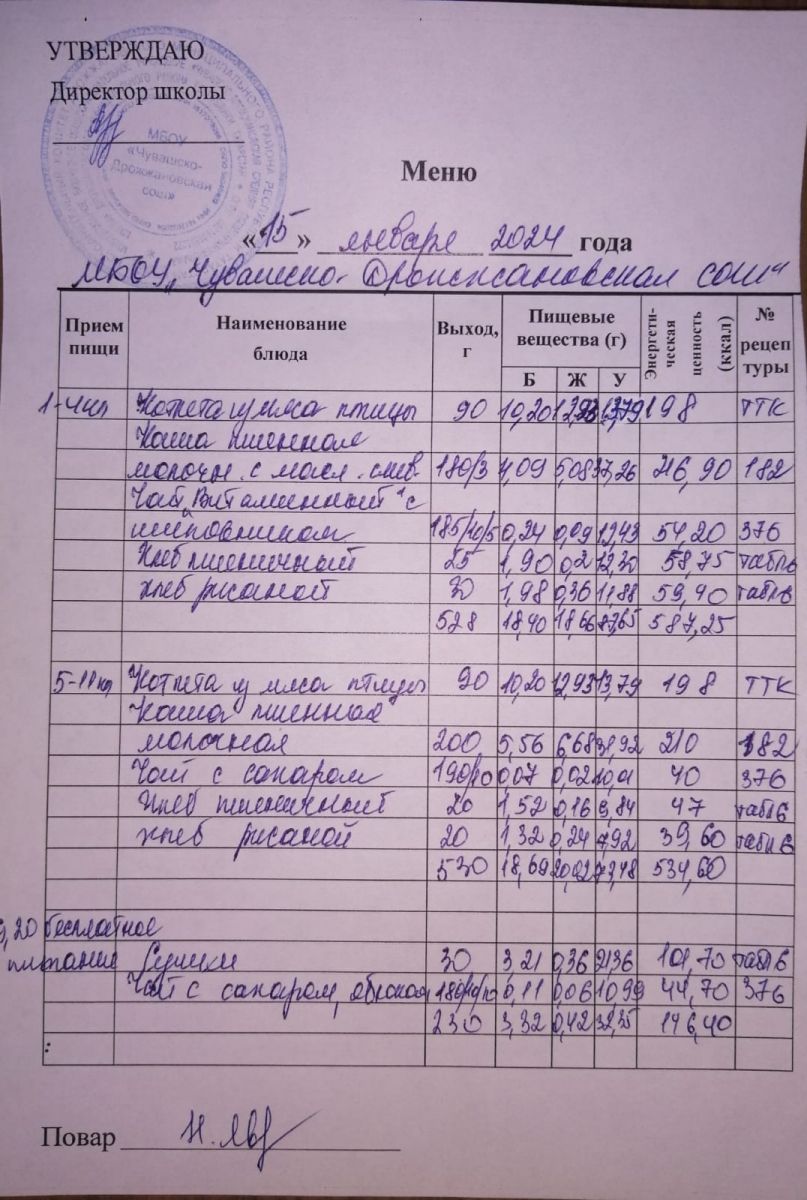 УТВЕРЖДАЮ
Директор школы
МБОУ
«Чувашско-
Дрожжановская
сош»
Меню
«15» января 2024 года
МБОУ "Чувашско-Дрожжановская сош"
Прием пищи Наименование блюда Выход, г Пищевые вещества (г) Энергетическая ценность (ккал) № рецептуры
Б Ж У
1-4кл Котлета из мяса птицы 90 10,20 12,93 13,79 198 ТТК
Каша пшенная
молочн. с масл. слив. 180/3 4,09 5,08 37,26 216,90 182
Чай „Витаминный" с
шиповником 185/40/5 0,24 0,09 12,43 54,20 376
Хлеб пшеничный 25 1,90 0,2 12,30 58,75 табл6
хлеб ржаной 30 1,98 0,36 11,88 59,40 табл6
528 18,40 18,66 87,65 587,25
5-11кл Котлета из мяса птицы 90 10,20 12,93 13,79 198 ТТК
Каша пшенная
молочная 200 5,56 6,68 31,92 210 182
Чай с сахаром 190/10 0,07 0,02 10,01 40 376
Хлеб пшеничный 20 1,52 0,16 9,84 47 табл6
хлеб ржаной 20 1,32 0,24 7,92 39,60 табл6
530 18,69 20,02 73,48 534,60
9,20 бесплатное
питание Сушки 30 3,21 0,36 21,36 101,70 табл6
Чай с сахаром, яблоком 180/10/10 0,11 0,06 10,99 44,70 376
230 3,32 0,42 32,35 146,40
:
Повар